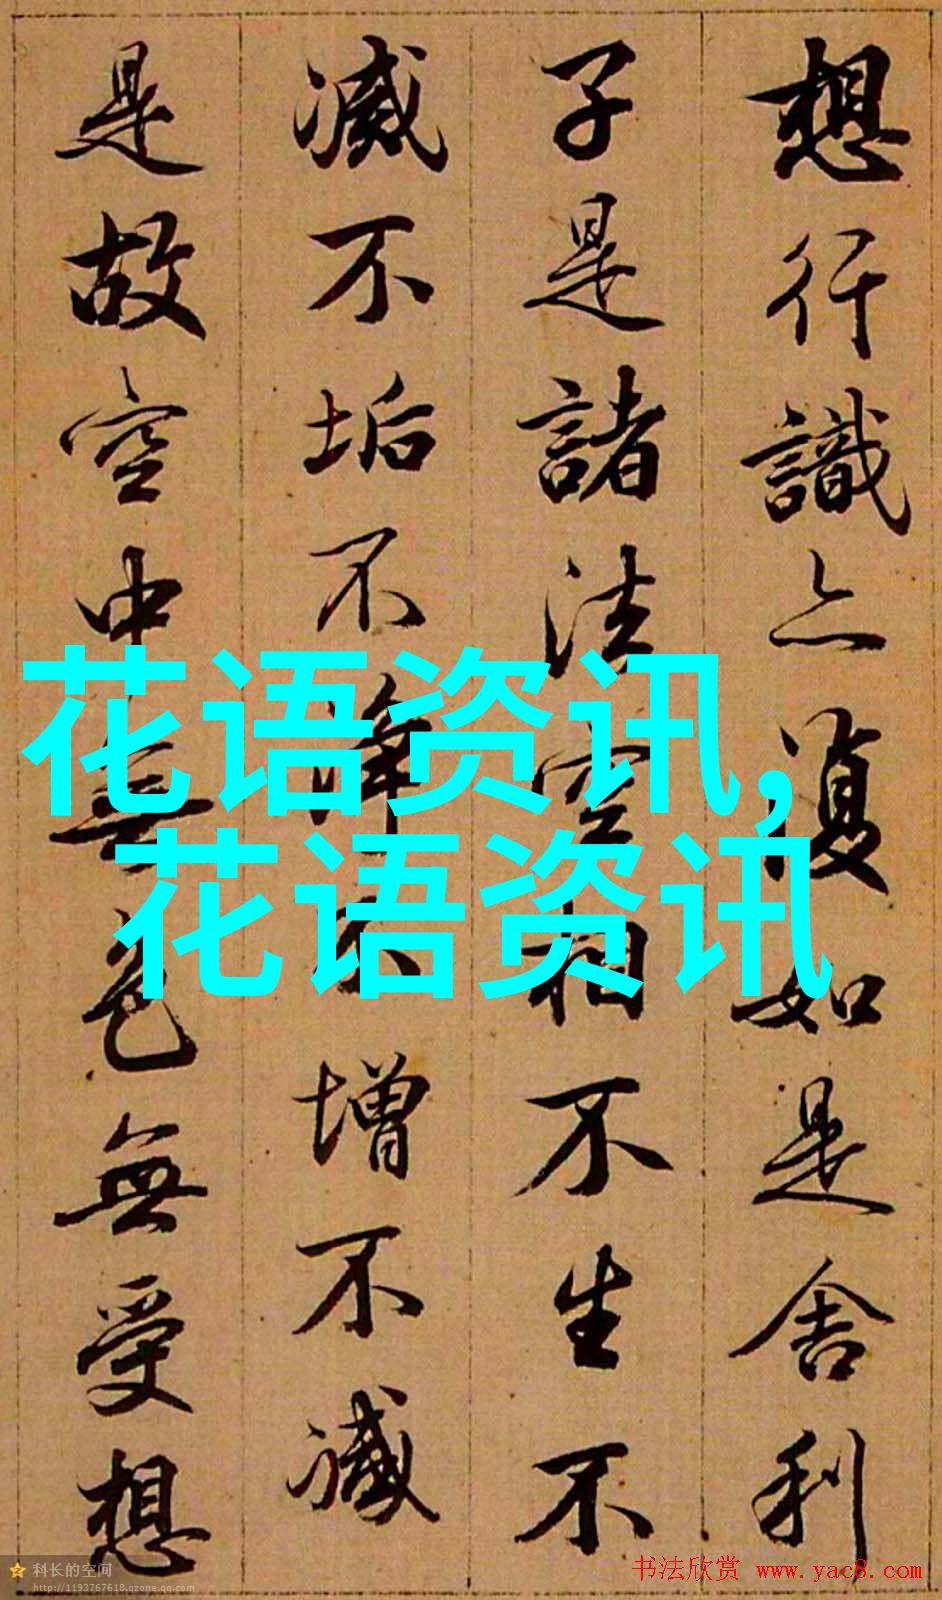 想行識亦復如是舍利
子是諸法空相不生不
滅不垢不淨不增不減
是故空中無色無受想
花语资讯,
花语资讯
科长的空间
http://1193767618.qzone.qq.com
书法欣赏 www.yac8.com